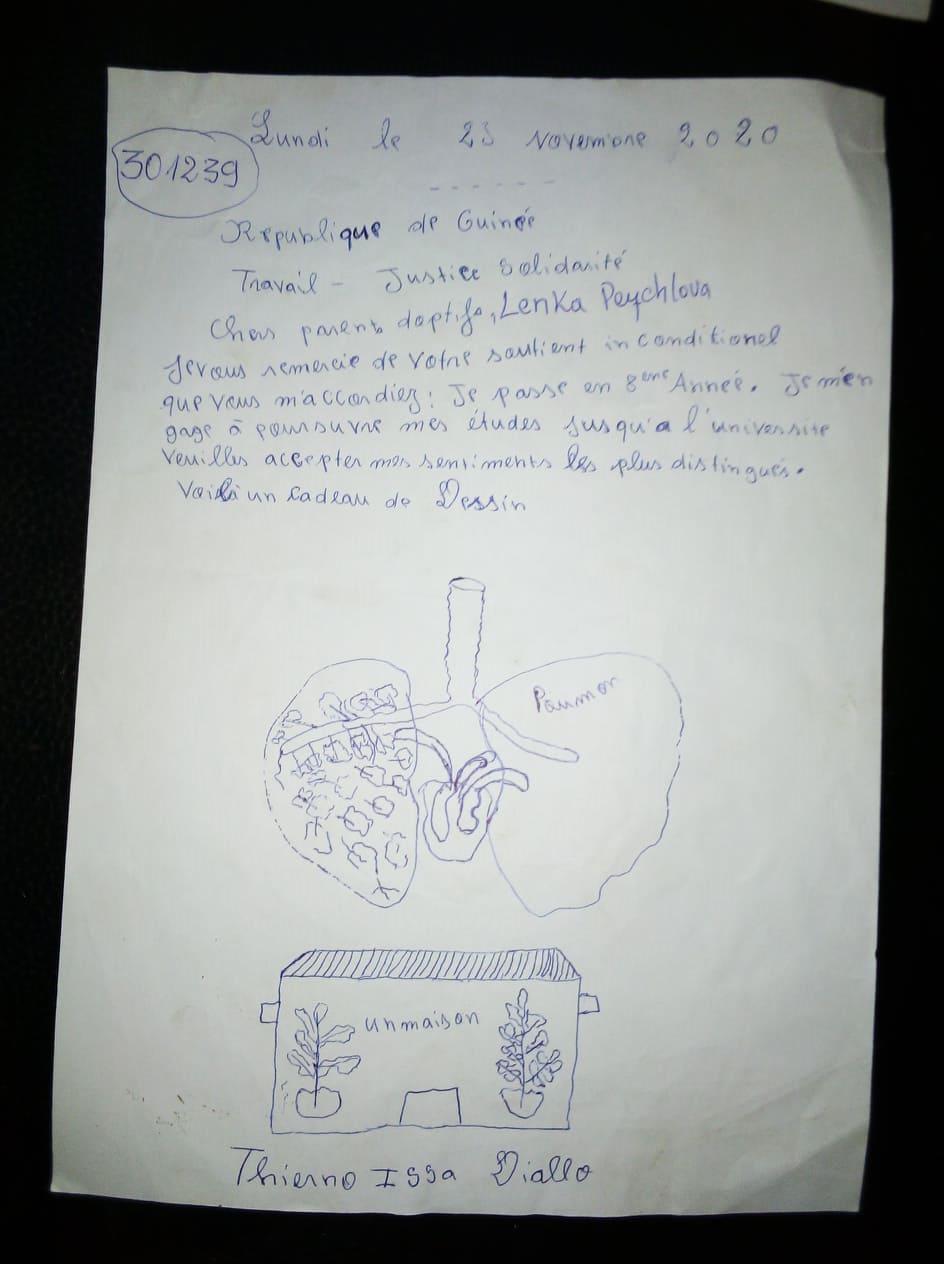 Lundi le 23 Novembre 2020
301239
Republique de Guinée
Travail - Justice Solidarité
Chers parents doptifs, Lenka Peychlova
Je vous remercie de votre soutient inconditionel
que vous m'accordiez! Je passe en 8ème Année. Je m'en
gage à poursuvre mes études jusqu'a l'université
Veuilles accepter mes sentiments les plus distingués.
Voilà un Cadeau de Dessin
Poumon
un maison
Thierno Issa Diallo